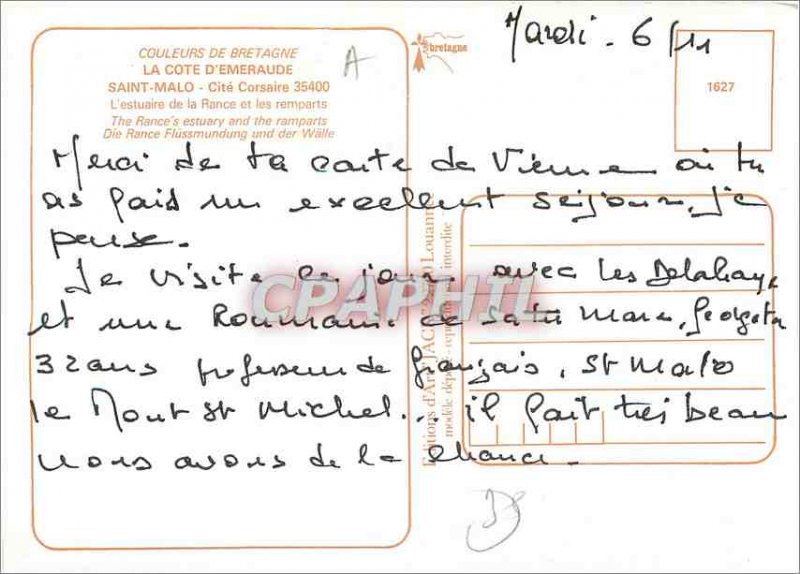 Mardi. 6/11
COULEURS DE BRETAGNE
LA COTE D'EMERAUDE
SAINT-MALO - Cité Corsaire 35400
L'estuaire de la Rance et les remparts
The Rance's estuary and the ramparts
Die Rance Flüssmundung und der Wälle
A
bretagne
1627
Merci de ta carte de Vienne où tu
as fait un excellent séjour, j'e
pense.
Je visite ce jour avec les Delahaye
et une Roumaine de Satu Mare, Georgeta
32 ans professeur de français, St Malo
le Mont St Michel... il fait très beau
nous avons de la chance.
Editions d'Art JACK Louann
modèle déposé - interdite
CPAPHIL